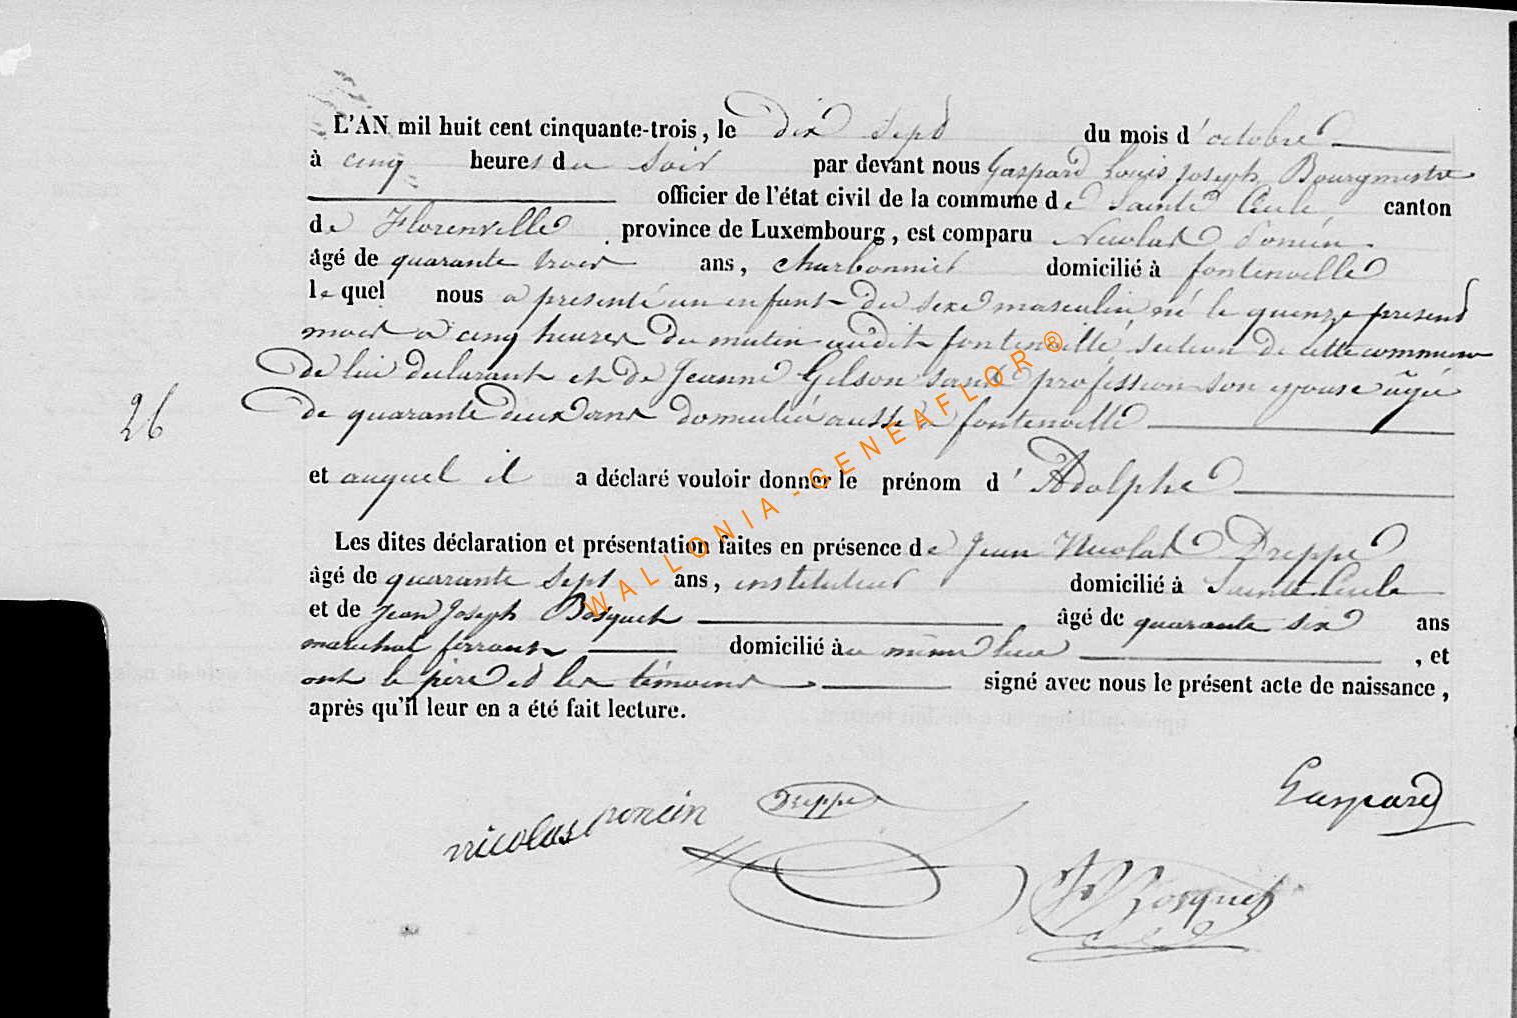 L'AN mil huit cent cinquante-trois, le dix Sept du mois d'octobre
à cinq heures du Soir par devant nous Gaspard Louis Joseph Bourgmestre
officier de l'état civil de la commune de Sainte Cécile canton
de Florenville province de Luxembourg, est comparu Nicolas Poncin
âgé de quarante trois ans, charbonnier domicilié à fontenoille
lequel nous a présenté un enfant du sexe masculin né le quinze présent
mois à cinq heures du matin audit fontenoille, section de cette commune
de lui déclarant et de Jeanne Gilson sans profession son epouse âgée
26
de quarante deux ans domiciliée aussi à fontenoille
et auquel il a déclaré vouloir donner le prénom d'Adolphe
Les dites déclaration et présentation faites en présence de Jean Nicolas Dreppe
âgé de quarante Sept ans, instituteur domicilié à Sainte Cécile
et de Jean Joseph Bosquet âgé de quarante six ans
maréchal ferrant domicilié au même lieu , et
ont le père et les témoins signé avec nous le présent acte de naissance,
après qu'il leur en a été fait lecture.
nicolas poncin Dreppe Gaspard
Bosquet
WALLONIA - GENEAFLOR ®